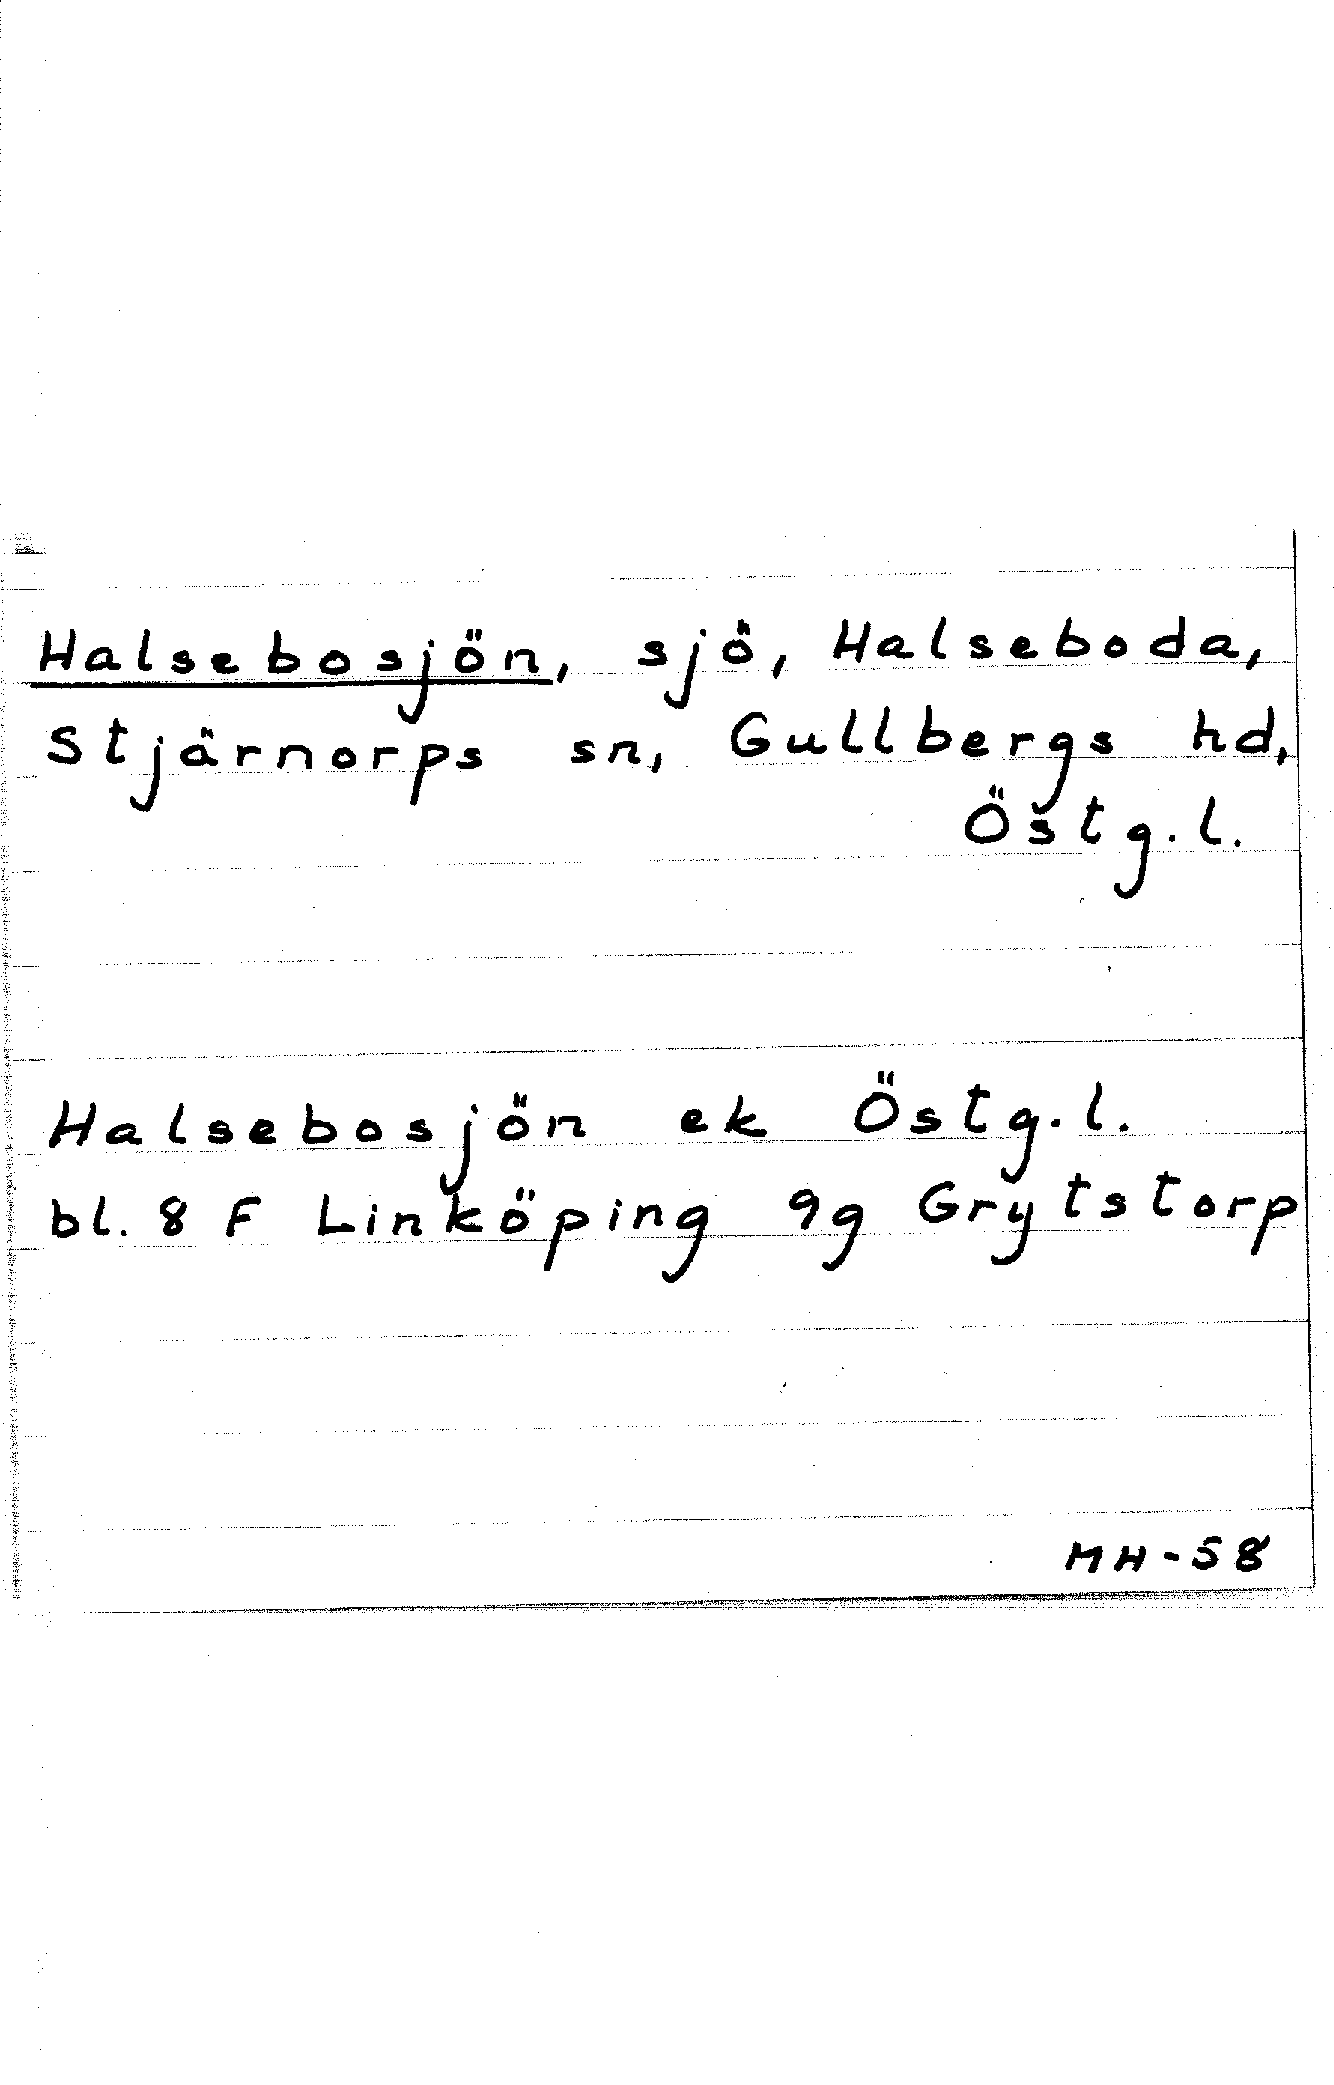 Halsebosjön, sjö, Halseboda,
Stjärnorps sn, Gullbergs hd,
Östg.l.
Halsebosjön ek Östg.l.
bl. 8 F Linköping 9g Grytstorp
MH-58